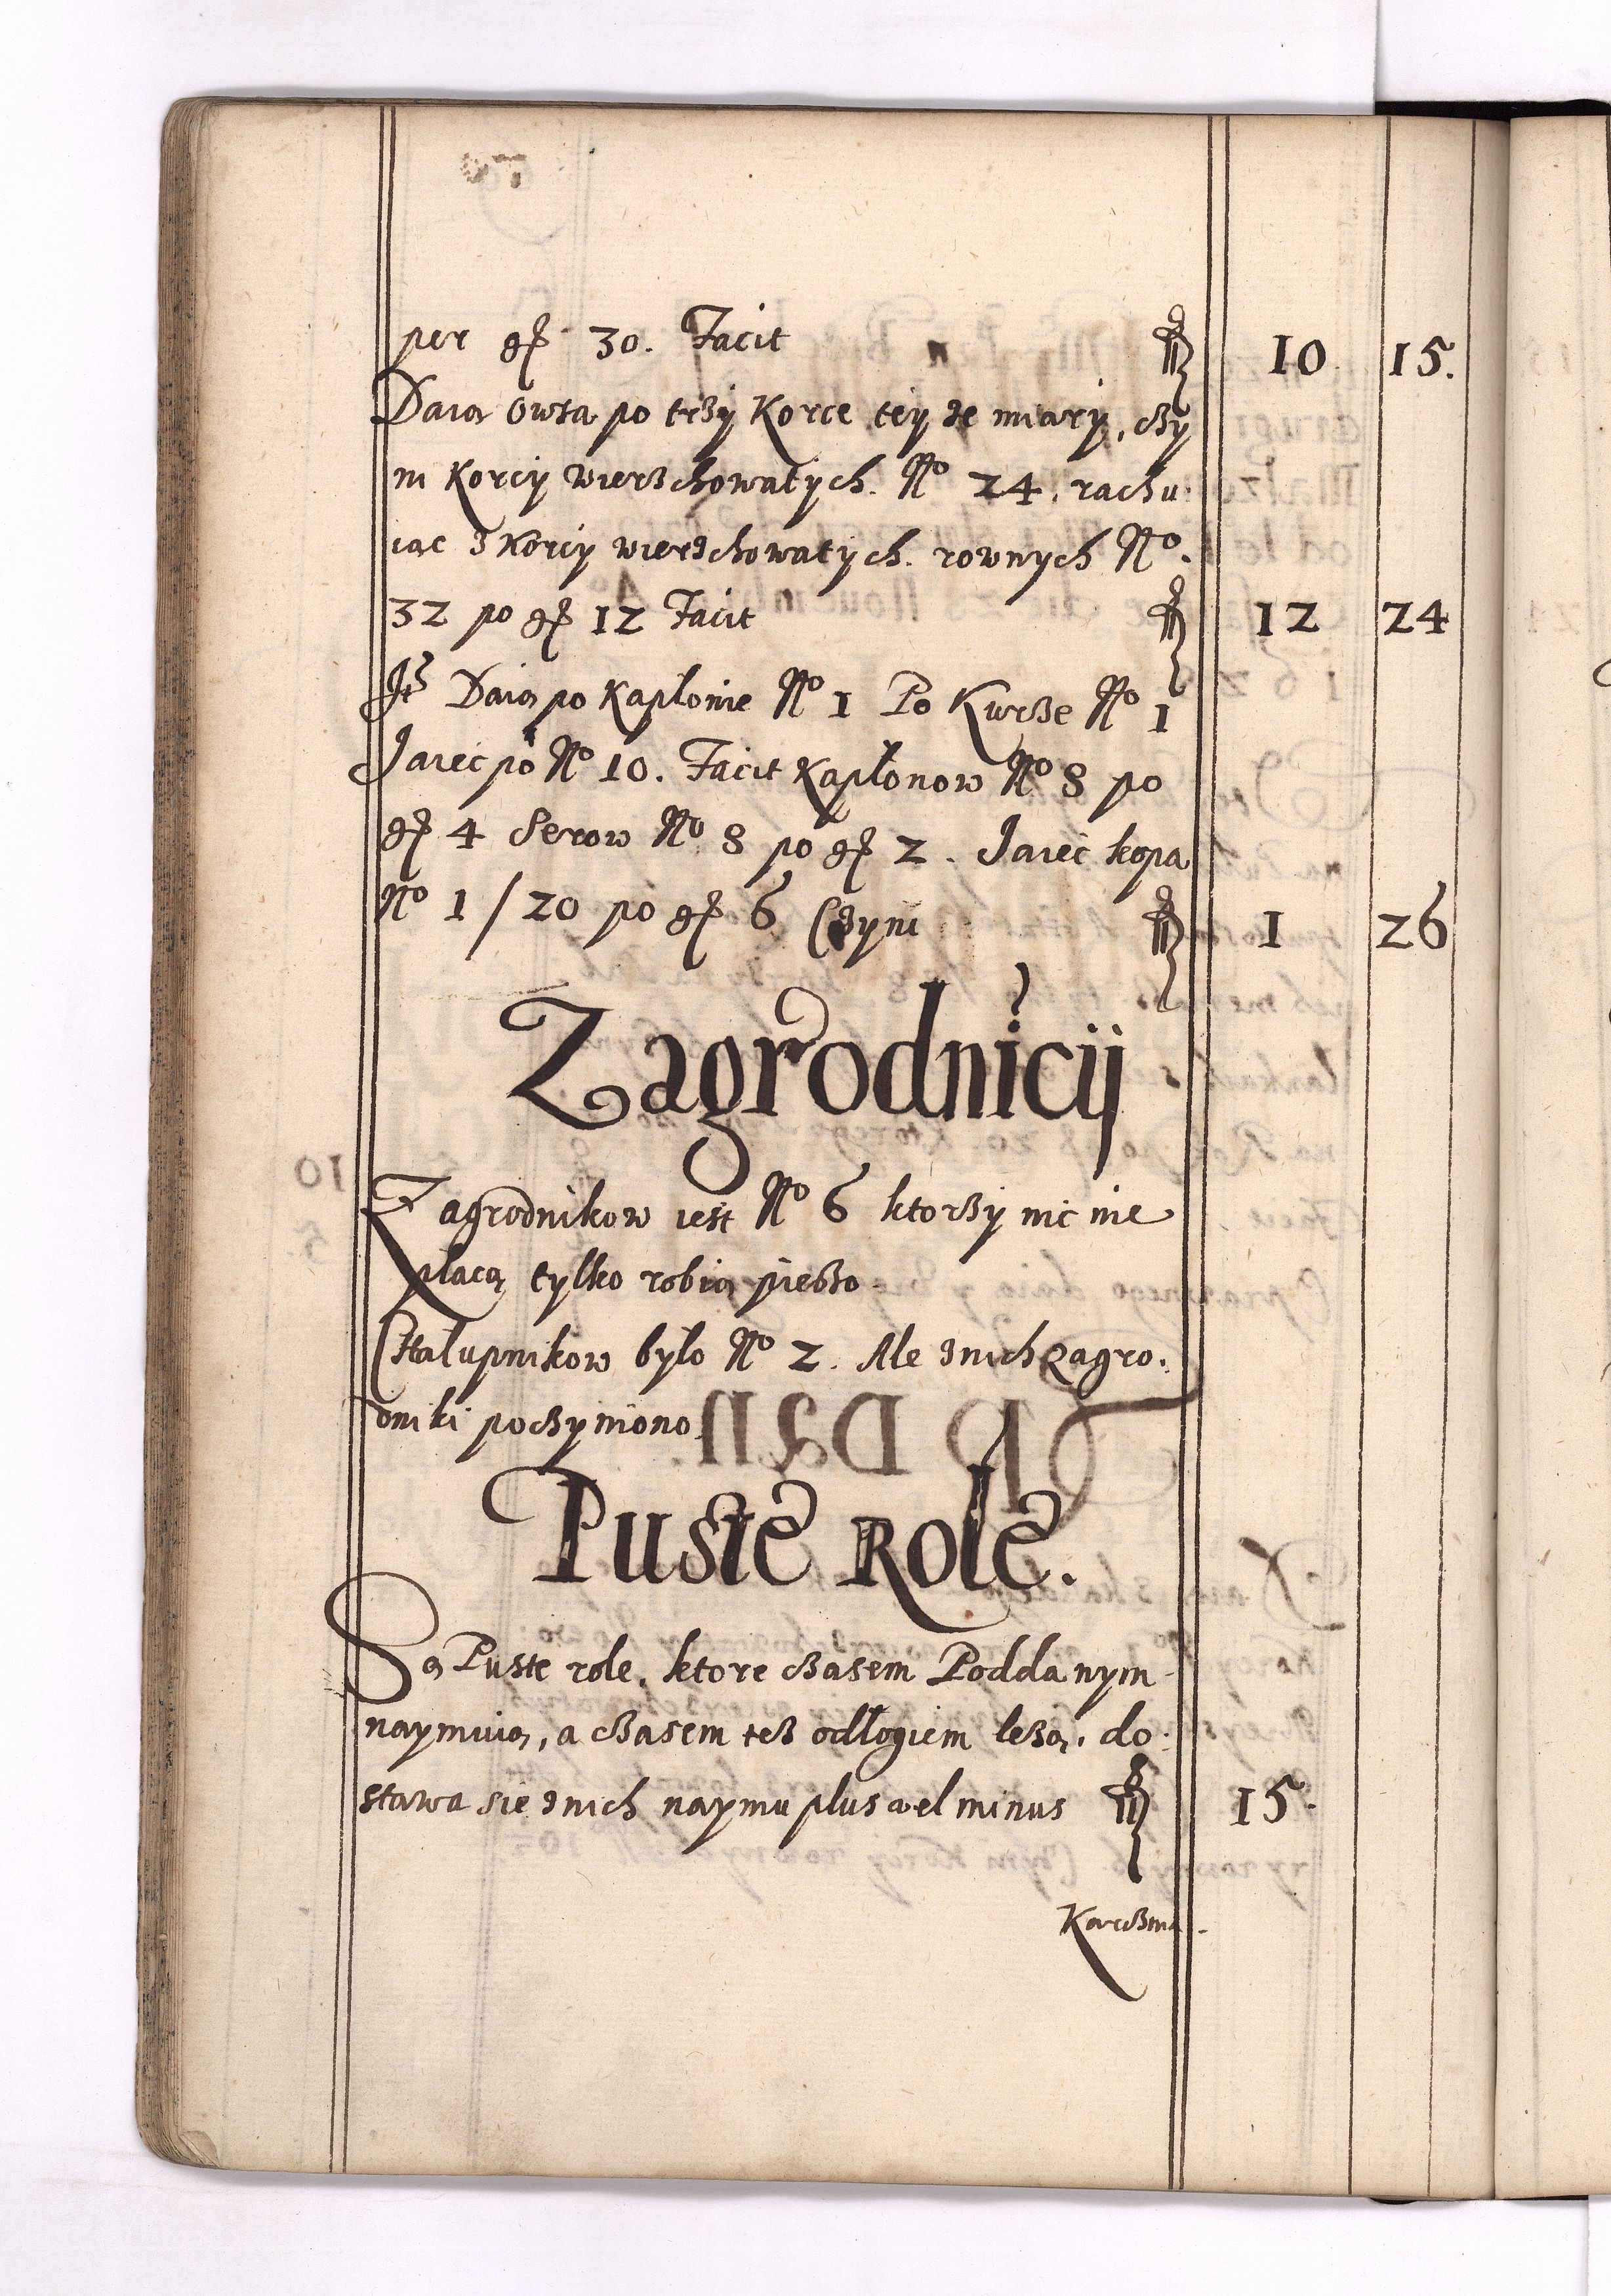 per gr 30. Facit fl 10 15.
Daią Owsa po trzy Korce teyze miary, czy
ni Korcy wierzchowatych. No 24, rachu
iąc z Korcy wierzchowatych. rownych No.
32 po gr 12 Facit fl 12 24
Jt Daią po Kapłonie No 1 Po Kurze No 1
Jaiec po No 10. Facit Kapłonow No 8 po
gr 4 Serow No 8 po gr 2. Jaiec kopa
No 1/20 po gr 6 Czyni fl 1 26
Zagrodnicij
Zagrodnikow iest No 6 ktorzy nic nie
płacą tylko robią pieszo.
Chalupnikow bylo No 2. Ale z nich zagro.
dniki poczyniono
Puste Role.
Są Puste role, ktore czasem Poddanym
naymuią, a czasem tez odłogiem lezą. do.
stawa sie z nich naymu plus vel minus fl 15.
Karczma.